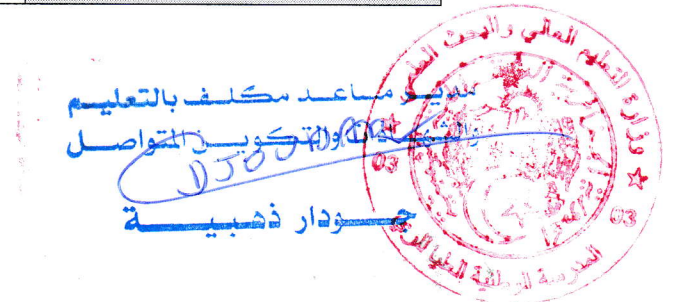 مدير مساعد مكلف بالتعليم
والشهادات والتكوين المتواصل
DJOUDAR
جودار ذهبية
وزارة التعليم العالي والبحث العلمي
03
03
المدرسة الوطنية العليا